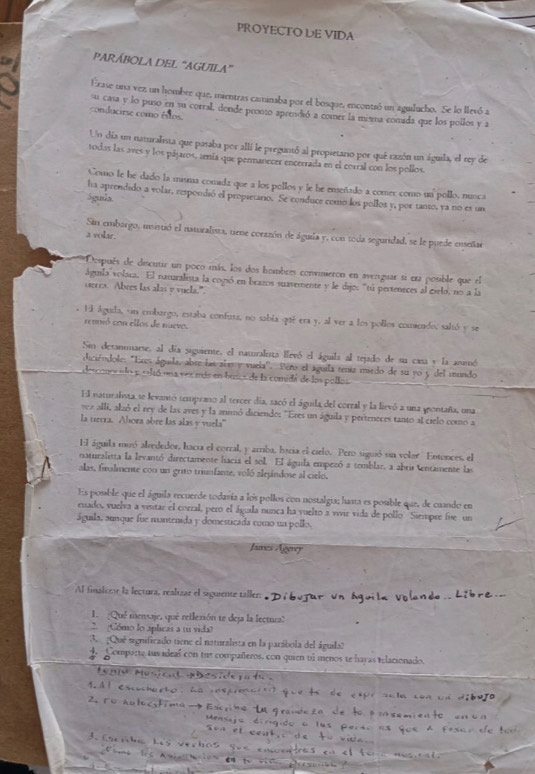 PROYECTO DE VIDA
PARÁBOLA DEL "AGUILA"
Érase una vez un hombre que, mientras caminaba por el bosque, encontró un aguilucho. Se lo llevó a
su casa y lo puso en su corral, donde pronto aprendió a comer la misma comida que los pollos y a
conducirse como éstos.
Un día un naturalista que pasaba por allí le preguntó al propietario por qué razón un águila, el rey de
todas las aves y los pájaros, tenía que permanecer encerrada en el corral con los pollos.
Como le he dado la misma comida que a los pollos y le he enseñado a comer como un pollo, nunca
ha aprendido a volar, respondió el propietario. Se conduce como los pollos y, por tanto, ya no es un
águila.
Sin embargo, insistió el naturalista, tiene corazón de águila y, con toda seguridad, se le puede enseñar
a volar.
Después de discutir un poco más, los dos hombres convinieron en averiguar si era posible que el
águila volara. El naturalista la cogió en brazos suavemente y le dijo: "tú perteneces al cielo, no a la
tierra. Abres las alas y vuela."
El águila, sin embargo, estaba confusa, no sabía qué era y, al ver a los pollos comiendo, saltó y se
reunió con ellos de nuevo.
Sin desanimarse, al día siguiente, el naturalista llevó el águila al tejado de su casa y la animó
diciéndole: "Eres águila, abre las alas y vuela". Pero el águila tenía miedo de su yo y del mundo
desconocido y saltó una vez más en busca de la comida de los pollos.
El naturalista se levantó temprano al tercer día, sacó el águila del corral y la llevó a una montaña, una
vez allí, alzó el rey de las aves y la animó diciendo: "Eres un águila y perteneces tanto al cielo como a
la tierra. Ahora abre las alas y vuela"
El águila miró alrededor, hacia el corral, y arriba, hacia el cielo. Pero siguió sin volar. Entonces, el
naturalista la levantó directamente hacia el sol. El águila empezó a temblar, a abrir lentamente las
alas, finalmente con un grito triunfante, voló alejándose al cielo.
Es posible que el águila recuerde todavía a los pollos con nostalgia; hasta es posible que, de cuando en
cuado, vuelva a visitar el corral, pero el águila nunca ha vuelto a vivir vida de pollo. Siempre fue un
águila, aunque fue mantenida y domesticada como un pollo.
James Aggrey
Al finalizar la lectura, realizar el siguiente taller: Dibujar un águila volando.. Libre...
1. ¿Qué mensaje, qué reflexión te deja la lectura?
2. ¿Cómo lo aplicas a tu vida?
3. ¿Qué significado tiene el naturalista en la parábola del águila?
4. Comparte tus ideas con tus compañeros, con quien tú menos te hayas relacionado.
musical → Desiderata
1. Al escucharlo. La inspiración que te de con un dibujo
2. Tu autoestima → Escribe la grandeza de tu pensamiento en un
mensaje dirigido a las que a pesar de
son el centro de tu vida
3. Escribe los hechos que encuentras en el musical.
en tu vida